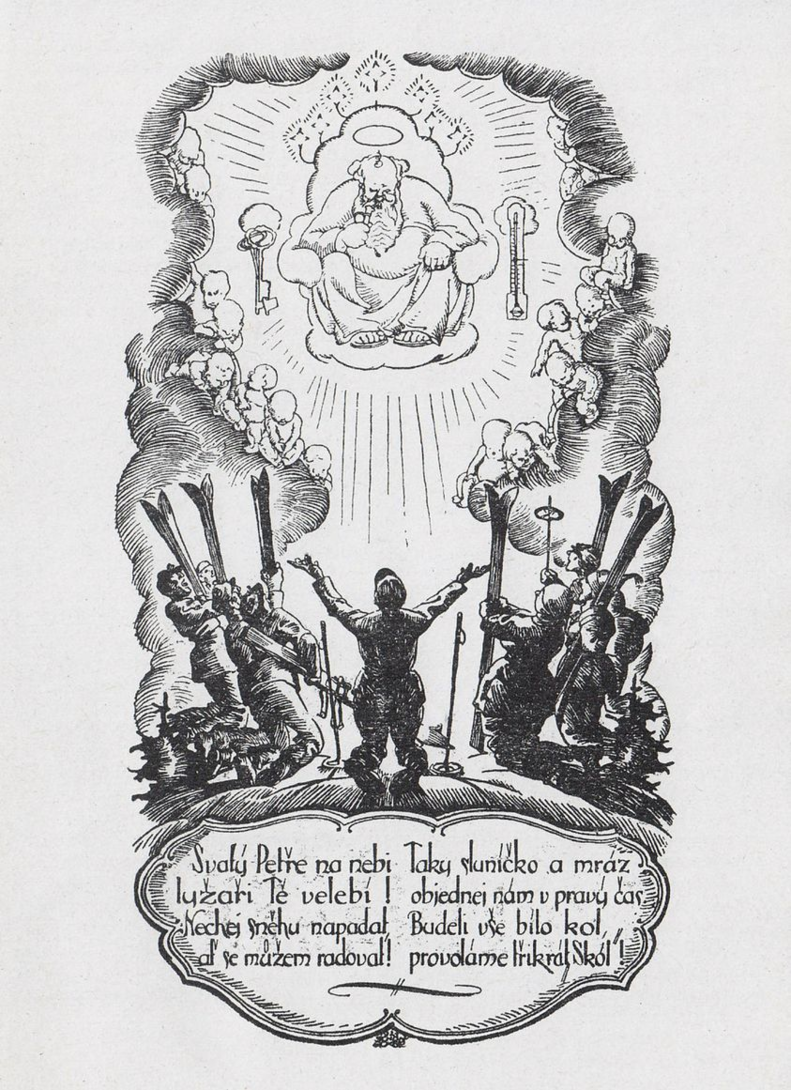 Svatý Petře na nebi
lyžaři Tě velebí !
Nechej sněhu napadat,
ať se můžem radovat!
Taky sluníčko a mráz
objednej nám v pravý čas.
Budeli vše bílo kol,
provoláme třikrát „Skól"!